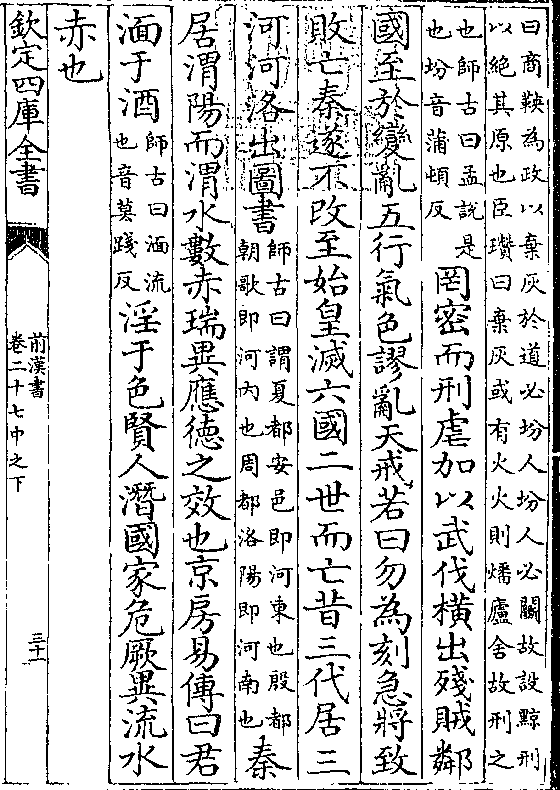 曰商鞅為政以棄灰於道必坋人坋人必鬬故設黥刑
以絶其原也臣瓚曰棄灰或有火火則燔廬舍故刑之
也師古曰孟說是
也坋音蒲頓反
罔密而刑虐加以武伐橫出殘賊鄰
國至於變亂五行氣色謬亂天戒若曰勿為刻急將致
敗亡秦遂不改至始皇滅六國二世而亡昔三代居三
河河洛出圖書
師古曰謂夏都安邑即河東也殷都
朝歌即河内也周都洛陽即河南也
秦
居渭陽而渭水數赤瑞異應德之效也京房易傳曰君
湎于酒
師古曰湎流
也音莫踐反
淫于色賢人潛國家危厥異流水
赤也
欽定四庫全書
前漢書
卷二十七中之下
三十一